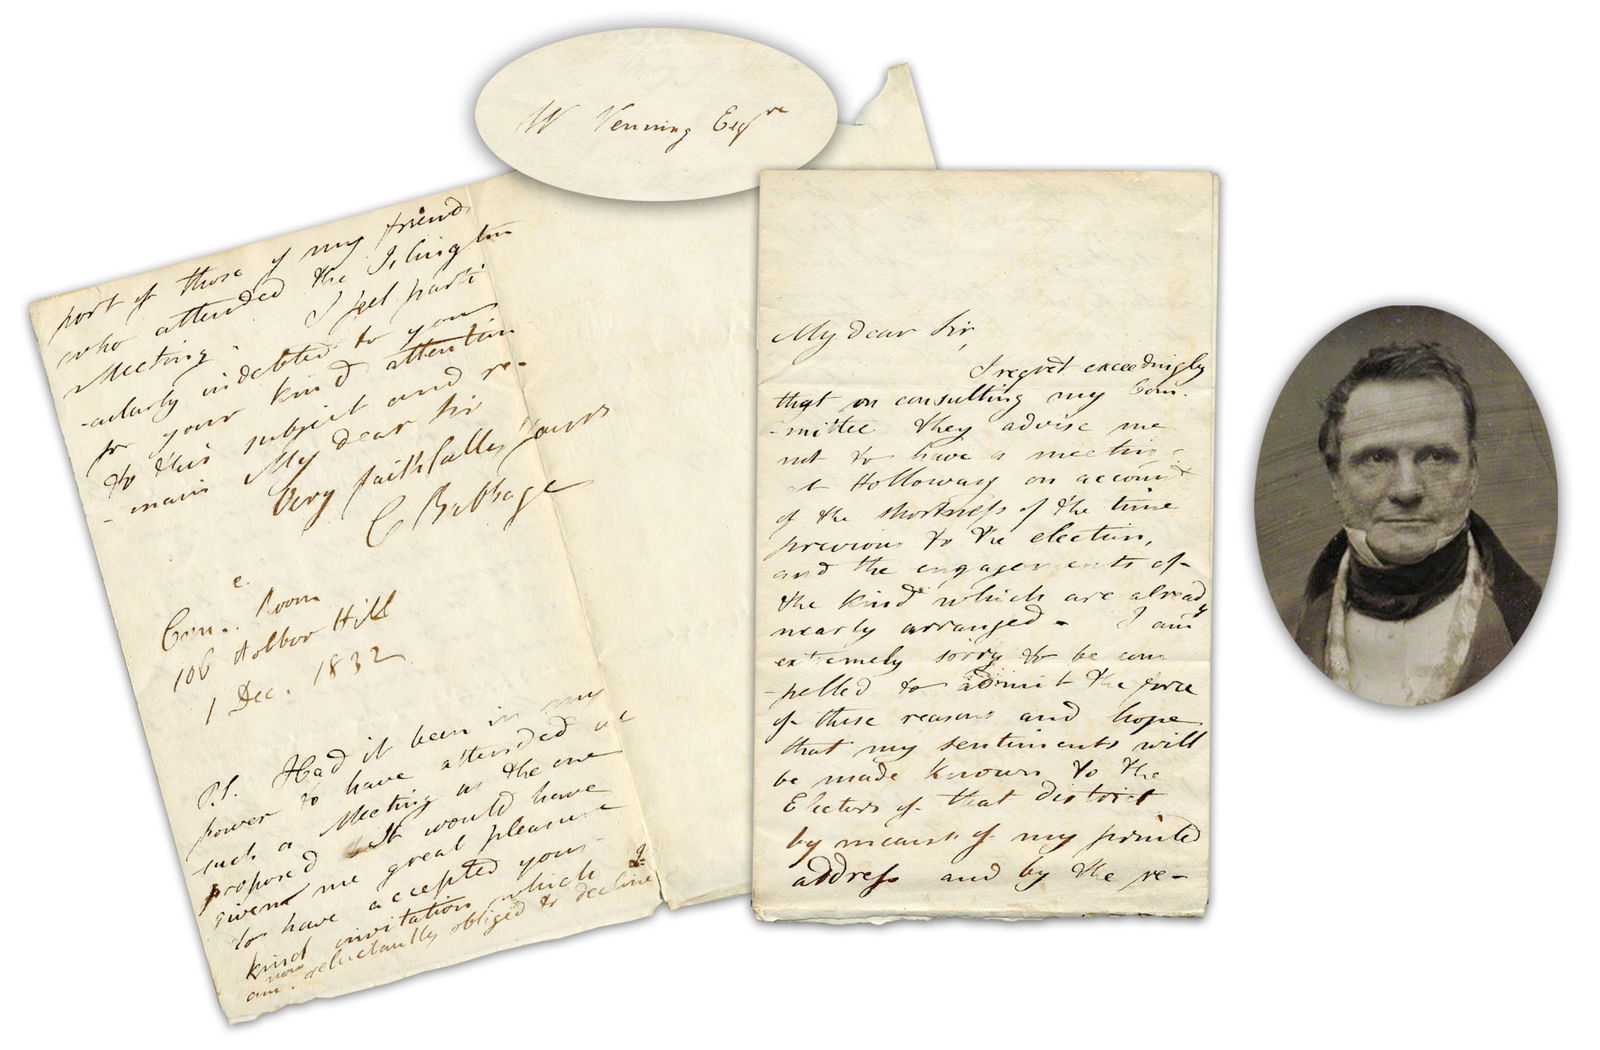 W Venning Esqre
My dear Sir,
I regret exceedingly
that on consulting my Com-
-mittee they advise me
not to have a meeting
at Holloway on account
of the shortness of the time
previous to the election,
and the engagements of
the kind which are already
nearly arranged. I am
extremely sorry to be com
-pelled to admit the force
of these reasons and hope
that my sentiments will
be made known to the
Electors of that district
by means of my printed
address and by the re-
port of those of my friends
who attended the Islington
Meeting. I feel parti
-cularly indebted to you
for your kind attention
to this subject and re-
-main My dear Sir
Very faithfully Yours
C Babbage
Comee. Room
106 Holbor Hill
1 Dec. 1832
P.S. Had it been in my
power to have attended at
such a Meeting as the one
proposed It would have
given me great pleasure
to have accepted your
kind invitation which I
am now reluctantly obliged to decline